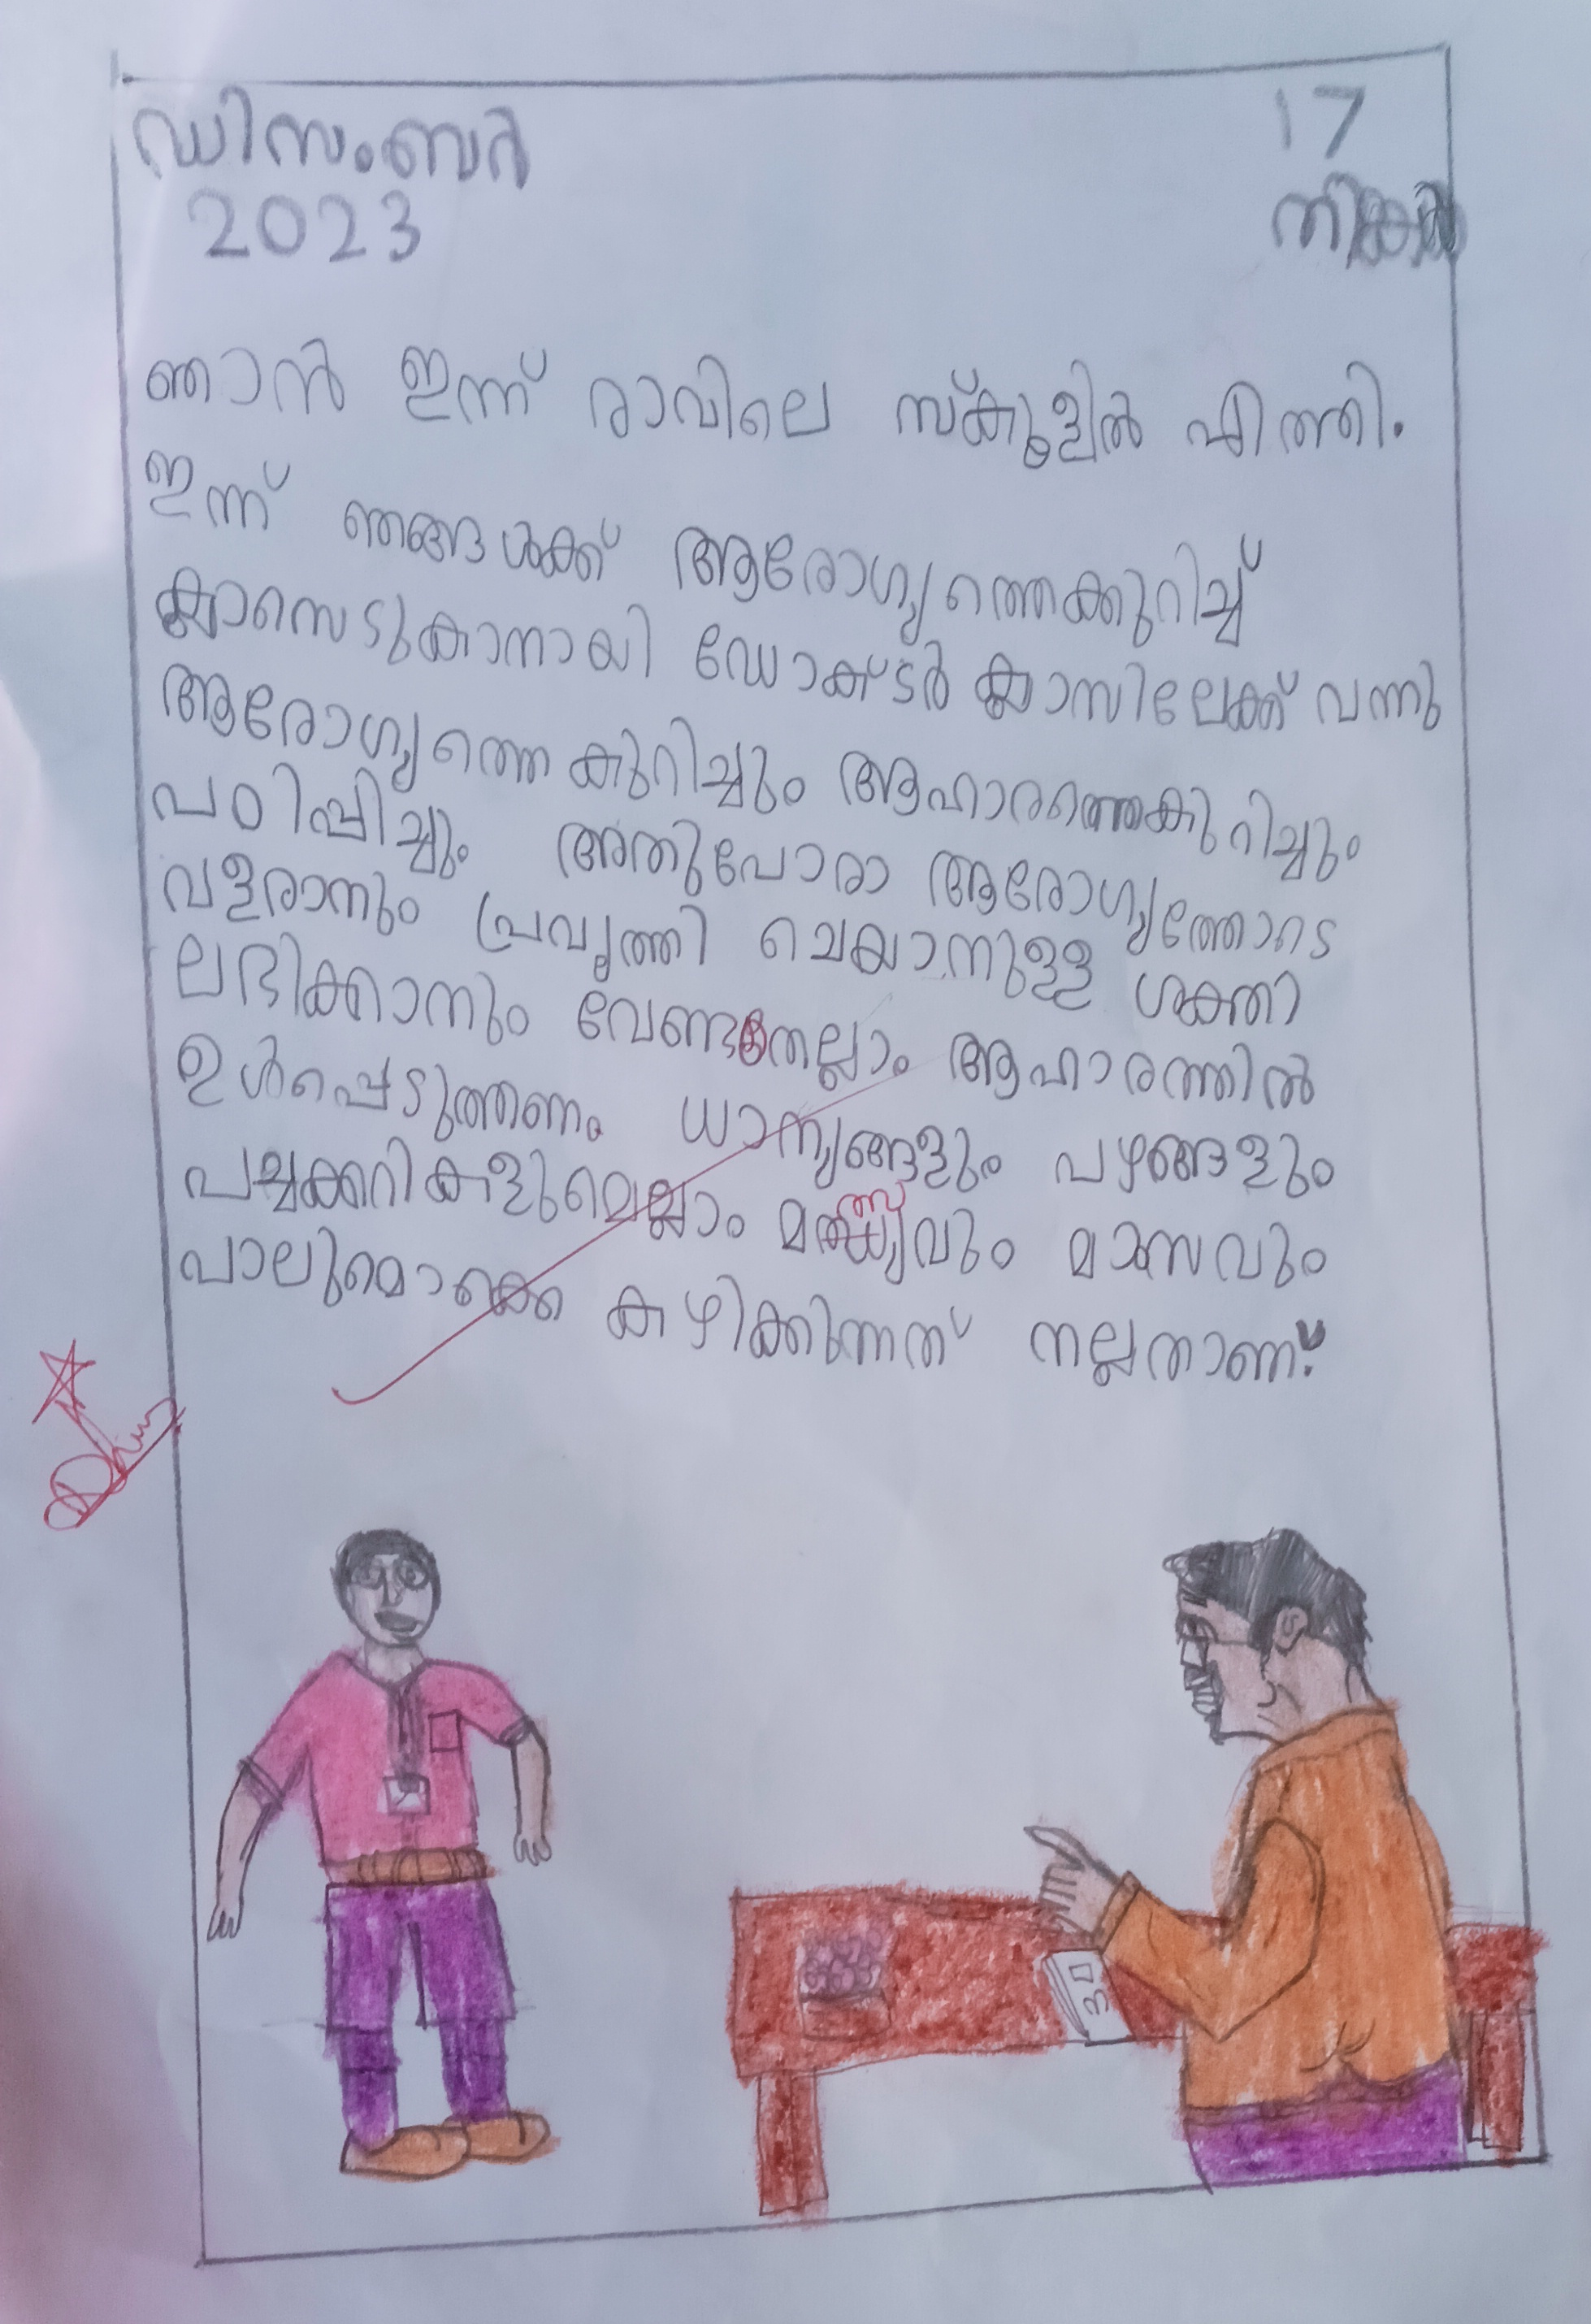 ഡിസംബർ 17
2023
ഞാൻ ഇന്ന് രാവിലെ സ്കൂളിൽ എത്തി.
ഇന്ന് ഞങ്ങൾക്ക് ആരോഗ്യത്തെക്കുറിച്ച്
ക്ലാസെടുകാനായി ഡോക്ടർ ക്ലാസിലേക്ക് വന്നു
ആരോഗ്യത്തെ കുറിച്ചും ആഹാരത്തെകുറിച്ചും
പഠിപ്പിച്ചും അതുപോരാ ആരോഗ്യത്തോടെ
വളരാനും പ്രവൃത്തി ചെയ്യാനുള്ള ശക്തി
ലഭിക്കാനും ആഹാരത്തിൽ
ഉൾപ്പെടുത്തണം ധാന്യങ്ങളും പഴങ്ങളും
പച്ചക്കറികളുമെല്ലാം മാംസവും
പാലുമൊക്കെ കഴിക്കുന്നത് നല്ലതാണ്.